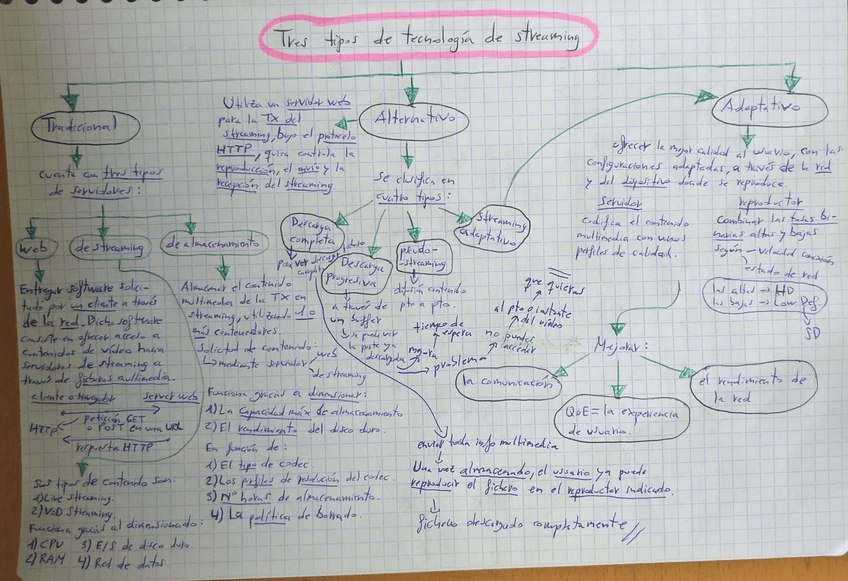 Tres tipos de tecnología de streaming
Tradicional
cuenta con tres tipos
de servidores:
web
de streaming
de almacenamiento
Entregar software solici-
tado por un cliente a través
de la red. Dicho software
consiste en ofrecer acceso a
contenidos de vídeo hacia
servidores de streaming a
través de ficheros multimedia.
cliente o Navegador servidor web
HTTP
petición GET
o POST en una web
respuesta HTTP
Sus tipos de contenido son:
1) Live streaming.
2) VoD streaming.
Funciona gracias al dimensionado:
1) CPU 3) E/S de disco duro
2) RAM 4) Red de datos
Almacenar el contenido
multimedia de la TX en
streaming, utilizando 1 o
más contenedores.
Solicitud de contenido:
mediante servidor web
de streaming
Funciona gracias a dimensionar:
1) La capacidad máx de almacenamiento
2) El rendimiento del disco duro.
En función de:
1) El tipo de codec.
2) Los perfiles de resolución del codec.
3) Nº horas de almacenamiento.
4) La política de borrado.
Utiliza un servidor web
para la TX del
streaming, bajo el protocolo
HTTP, quien controla la
reproducción, el envío y la
recepción del streaming
Alternativo
se clasifica en
cuatro tipos:
Descarga
completa
Descarga
progresiva
pseudo-
streaming
streaming
adaptativo
a través de
un buffer
descargada
mejora
tiempo de
espera
problema
difusión contenido
pto a pto.
no puedes
acceder
al pto o instante
del vídeo
que quieras
enviar toda info multimedia
Una vez almacenado, el usuario ya puede
reproducir el fichero en el reproductor indicado.
fichero descargado completamente
Adaptativo
ofrecer la mejor calidad al usuario, con las
configuraciones adaptadas, a través de la red
y del dispositivo donde se reproduce.
servidor
codifica el contenido
multimedia con unos
perfiles de calidad.
reproductor
Combinar las tasas bi-
narias altas y bajas
según - velocidad conexión
estado de red
las altas → HD
las bajas → Low Def
SD
Mejorar:
la comunicación
QoE = la experiencia
de usuario.
el rendimiento de
la red